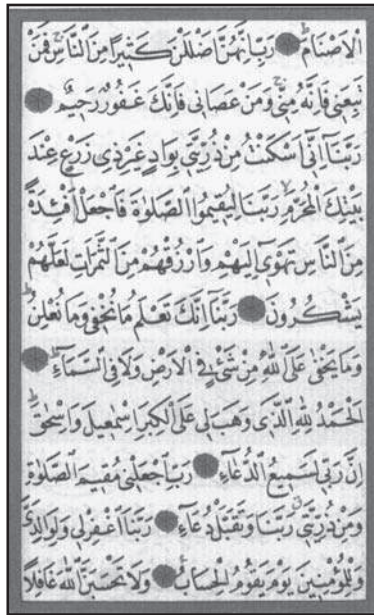 الْاَصْنَامَ ۞ رَبِّ اِنَّهُنَّ اَضْلَلْنَ كَث۪يرًا مِنَ النَّاسِۚ فَمَنْ
تَبِعَن۪ي فَاِنَّهُ مِنّ۪يۚ وَمَنْ عَصَان۪ي فَاِنَّكَ غَفُورٌ رَح۪يمٌ ۞
رَبَّنَٓا اِنّ۪ٓي اَسْكَنْتُ مِنْ ذُرِّيَّت۪ي بِوَادٍ غَيْرِ ذ۪ي زَرْعٍ عِنْدَ
بَيْتِكَ الْمُحَرَّمِۙ رَبَّنَا لِيُق۪يمُوا الصَّلٰوةَ فَاجْعَلْ اَفْـِٔدَةً
مِنَ النَّاسِ تَهْو۪ٓي اِلَيْهِمْ وَارْزُقْهُمْ مِنَ الثَّمَرَاتِ لَعَلَّهُمْ
يَشْكُرُونَ ۞ رَبَّنَٓا اِنَّكَ تَعْلَمُ مَا نُخْف۪ي وَمَا نُعْلِنُۜ
وَمَا يَخْفٰى عَلَى اللّٰهِ مِنْ شَيْءٍ فِي الْاَرْضِ وَلَا فِي السَّمَٓاءِ ۞
اَلْحَمْدُ لِلّٰهِ الَّذ۪ي وَهَبَ ل۪ي عَلَى الْكِبَرِ اِسْمٰع۪يلَ وَاِسْحٰقَۜ
اِنَّ رَبّ۪ي لَسَم۪يعُ الدُّعَٓاءِ ۞ رَبِّ اجْعَلْن۪ي مُق۪يمَ الصَّلٰوةِ
وَمِنْ ذُرِّيَّت۪يۗ رَبَّنَا وَتَقَبَّلْ دُعَٓاءِ ۞ رَبَّنَا اغْفِرْ ل۪ي وَلِوَالِدَيَّ
وَلِلْمُؤْمِن۪ينَ يَوْمَ يَقُومُ الْحِسَابُ ۞ وَلَا تَحْسَبَنَّ اللّٰهَ غَافِلًا